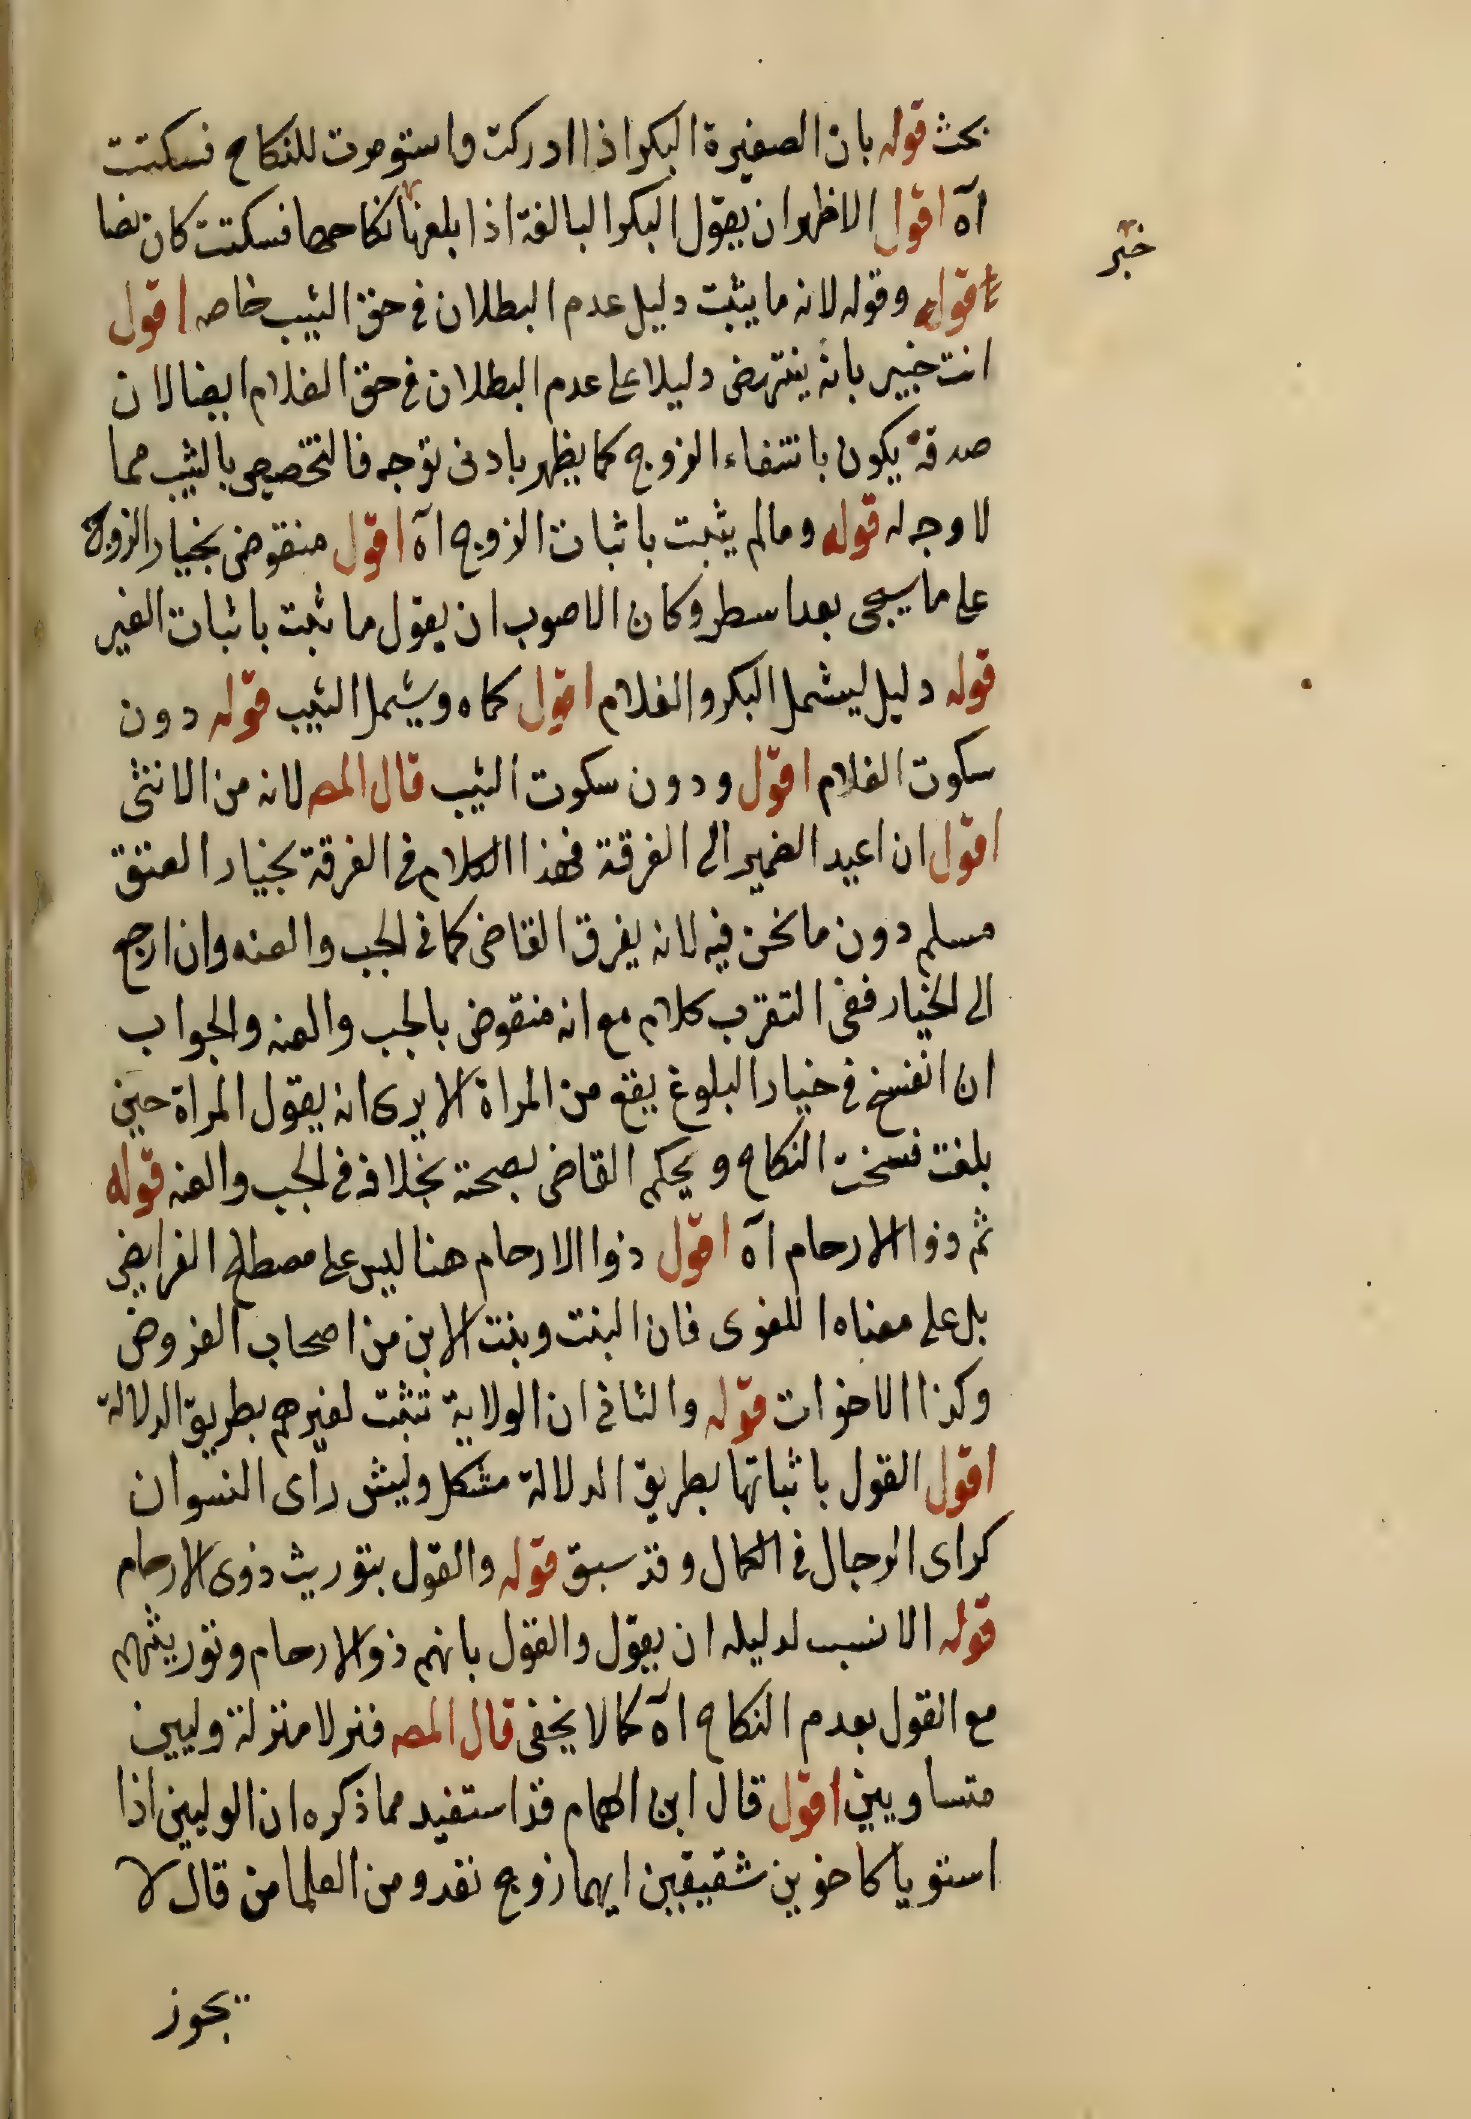 بحث قوله بان الصغيرة البكر اذا ادركت واستومرت للنكاح فسكتت
آه اقول الاظهر ان يقول البكر البالغة اذا بلغها نكاحها فسكتت كان رضا
قوله وقوله لانه ما يثبت دليل عدم البطلان في حق الثيب خاصه اقول
انت خبير بانه ينتهض دليلا على عدم البطلان في حق الغلام ايضا لان
صدقه يكون بانتفاء الزوج كما يظهر بادنى توجه فالتخصيص بالثيب مما
لا وجه له قوله وما لم يثبت باثبات الزوج آه اقول منقوض بخيار الزوجة
على ما سيجى بعد اسطر وكان الاصوب ان يقول ما ثبت باثبات الغير
قوله دليل ليشمل البكر والغلام اقول كماه ويشمل الثيب قوله دون
سكوت الغلام اقول ودون سكوت الثيب قال المصه لانه من الانثى
اقول ان اعيد الضمير الى الفرقة فهذا الكلام في الفرقة بخيار العتق
مسلم دون ما نحن فيه لانه يفرق القاضى كما في الجب والعنه وان ارجع
الى الخيار ففى التقرب كلام مع انه منقوض بالجب والعنه والجواب
ان الفسخ في خيار البلوغ يقع من المراة الا يرى انه يقول المراة حين
بلغت فسخت النكاح ويحكم القاضى بصحته بخلافه في الجب والعنه قوله
ثم ذوا الارحام آه اقول ذوا الارحام هنا ليس على مصطلح الفرايض
بل على معناه اللغوى فان البنت وبنت الابن من اصحاب الفروض
وكذا الاخوات قوله والثانى ان الولاية تثبت لغيرهم بطريق الدلالة
اقول القول باثباتها بطريق الدلالة مشكل وليس راى النسوان
كراى الرجال في الكمال وقد سبق قوله والقول بتوريث ذوى الارحام
قوله الانسب لدليله ان يقول والقول بانهم ذو الارحام وتوريثهم
مع القول بعدم النكاح آه كما لا يخفى قال المصه فنزلا منزلة وليين
متساويين اقول قال ابن الهمام قد استفيد مما ذكره ان الوليين اذا
استويا كاخوين شقيقين ايهما زوج نفد ومن العلما من قال لا
يجوز
خبر